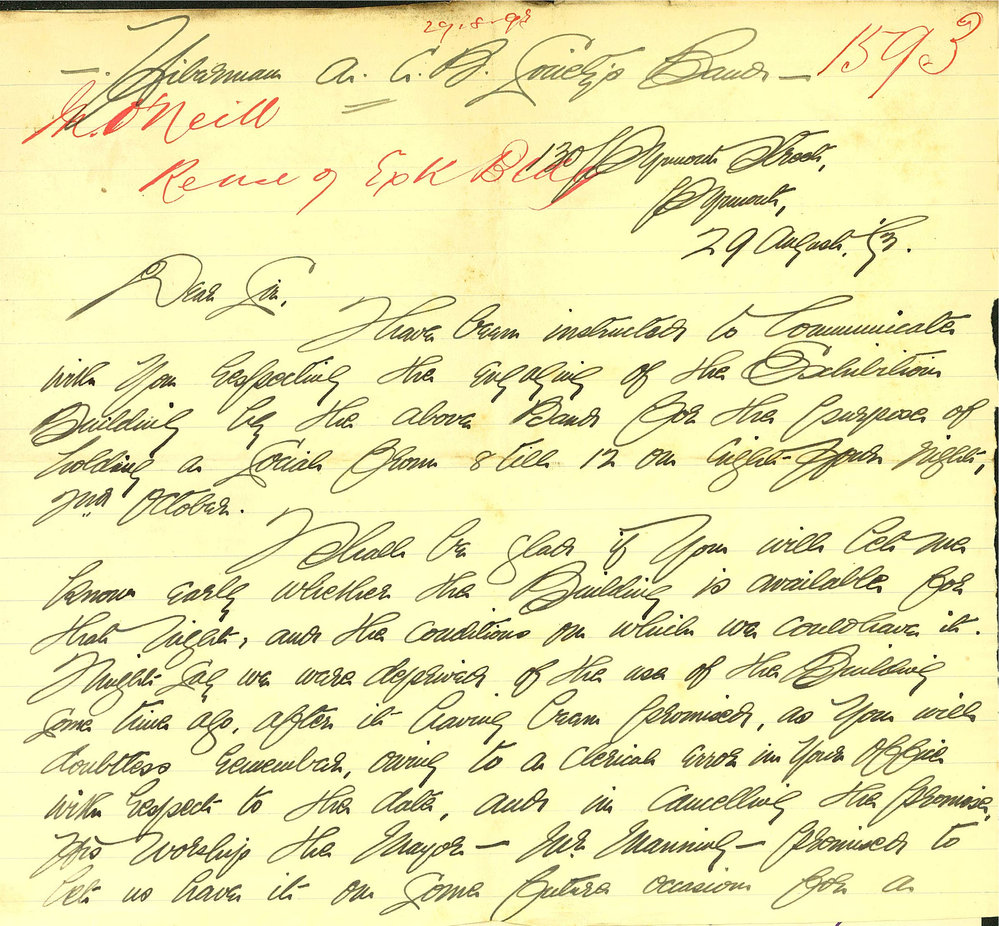 29.8.93
— Hibernian A. C. B. Society's Band — 1593
M. O'Neill
Reuse of Exh Bldg
130 Pymont Street,
Pymont,
29 August, '93.
Dear Sir,
I have been instructed to communicate
with you respecting the engaging of the Exhibition
Building by the above Band for the purpose of
holding a Social from 8 till 12 on Eight-Hour Night,
2nd October.
I shall be glad if you will let me
know early whether the Building is available for
that night, and the conditions on which we could have it.
I might say we were deprived of the use of the Building
some time ago, after it having been promised, as you will
doubtless remember, owing to a clerical error in your office
with respect to the date, and in cancelling the promise,
His Worship the Mayor — Mr. Manning — promised to
let us have it on some future occasion for a